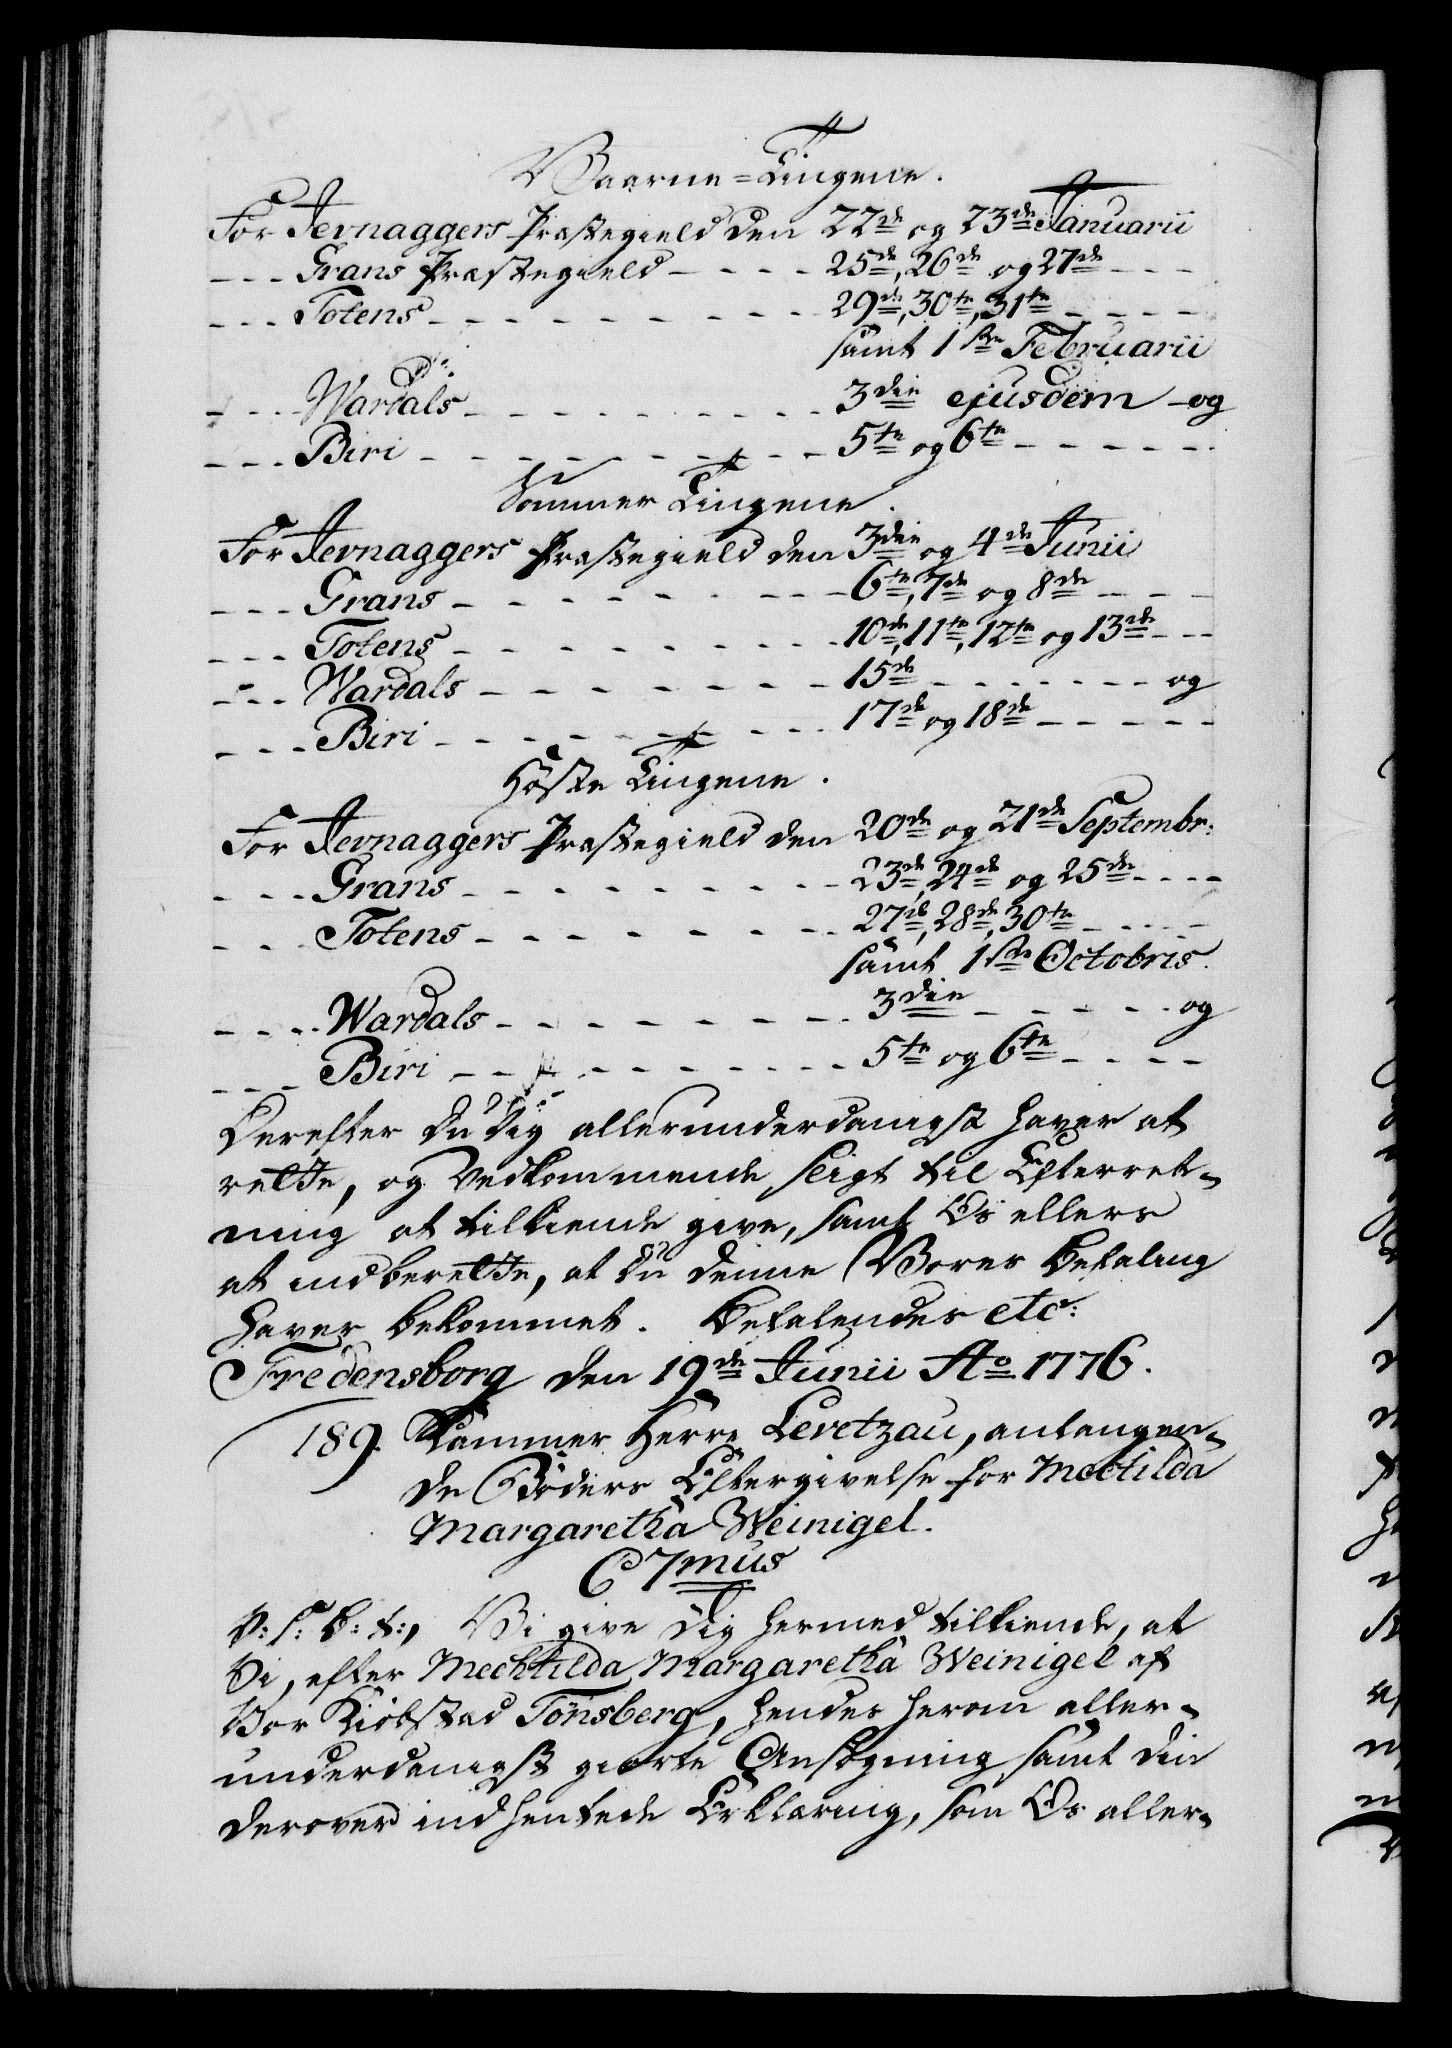 Vaarne-Tingene.
For Jevnaggers Præstegield den 22de og 23de Januarii
--- Grans Præstegield ---- 25de, 26de og 27de ---
--- Totens --------- 29de, 30te, 31te ----
samt 1ste Februarii
--- Wardals --------- 3die ejusdem - og
--- Biri --------- 5te og 6te -----
Sommer Tingene.
For Jevnaggers Præstegield den 3die og 4de Junii
--- Grans -------- 6te, 7de og 8de ---
--- Totens -------- 10de, 11te, 12te og 13de ---
--- Wardals -------- 15de ------- og
--- Biri -------- 17de og 18de -----
Høste Tingene.
For Jevnaggers Præstegield den 20de og 21de Septembr:
--- Grans -------- 23de, 24de og 25de ----
--- Totens -------- 27de, 28de, 30te ----
samt 1ste Octobris.
---- Wardals -------- 3die ------ og
--- Biri -------- 5te og 6te ----
Derefter Du Dig allerunderdanigst haver at
rette, og Vedkommende sligt til Efterret-
ning at tilkiende give, samt Os ellers
at indberette, at Du denne Vores Befaling
haver bekommet. Befalendes etc:
Fredensborg den 19de Junii Ao 1776.
189. Kammer Herre Levetzau, anlangen-
de Bøders Eftergivelse for Mectilda
Margaretha Weinigel.
C 7mus
V: S: B: t:, Vi give Dig hermed tilkiende, at
Vi, efter Mechtilda Margaretha Weinigel af
Vor Kiøbstad Tönsberg, hendes herom aller-
underdanigst giorte Ansøgning samt din
derover indhentede Erklæring, som Os aller-